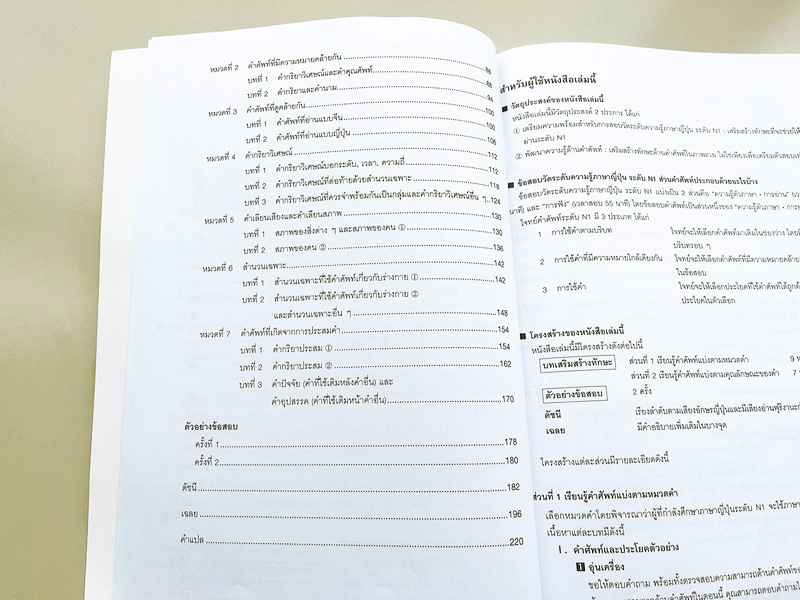 หมวดที่ 2 คำศัพท์ที่มีความหมายคล้ายกัน
บทที่ 1 คำกริยาวิเศษณ์และคำคุณศัพท์ 88
บทที่ 2 คำกริยาและคำนาม 94
หมวดที่ 3 คำศัพท์ที่ดูคล้ายกัน 100
บทที่ 1 คำศัพท์ที่อ่านแบบจีน 100
บทที่ 2 คำศัพท์ที่อ่านแบบญี่ปุ่น 106
หมวดที่ 4 คำกริยาวิเศษณ์ 112
บทที่ 1 คำกริยาวิเศษณ์บอกระดับ, เวลา, ความถี่ 112
บทที่ 2 คำกริยาวิเศษณ์ที่ต่อท้ายด้วยสำนวนเฉพาะ 118
บทที่ 3 คำกริยาวิเศษณ์ที่ควรจำพร้อมกันเป็นกลุ่มและคำกริยาวิเศษณ์อื่น ๆ 124
หมวดที่ 5 คำเลียนเสียงและคำเลียนสภาพ 130
บทที่ 1 สภาพของสิ่งต่าง ๆ และสภาพของคน ① 130
บทที่ 2 สภาพของคน ② 136
หมวดที่ 6 สำนวนเฉพาะ 142
บทที่ 1 สำนวนเฉพาะที่ใช้คำศัพท์เกี่ยวกับร่างกาย ① 142
บทที่ 2 สำนวนเฉพาะที่ใช้คำศัพท์เกี่ยวกับร่างกาย ②
และสำนวนเฉพาะอื่น ๆ 148
หมวดที่ 7 คำศัพท์ที่เกิดจากการประสมคำ 154
บทที่ 1 คำกริยาประสม ① 154
บทที่ 2 คำกริยาประสม ② 162
บทที่ 3 คำปัจจัย (คำที่ใช้เติมหลังคำอื่น) และ
คำอุปสรรค (คำที่ใช้เติมหน้าคำอื่น) 170
ตัวอย่างข้อสอบ
ครั้งที่ 1 178
ครั้งที่ 2 180
ดัชนี 182
เฉลย 196
คำแปล 220
สำหรับผู้ใช้หนังสือเล่มนี้
■ วัตถุประสงค์ของหนังสือเล่มนี้
หนังสือเล่มนี้มีวัตถุประสงค์ 2 ประการ ได้แก่
① เตรียมความพร้อมสำหรับการสอบวัดระดับความรู้ภาษาญี่ปุ่น ระดับ N1 : เสริมสร้างทักษะที่จะช่วยให้
ผ่านระดับ N1
② พัฒนาความรู้ด้านคำศัพท์ : เสริมสร้างทักษะด้านคำศัพท์ในภาพรวม ไม่ใช่เพียงเพื่อเตรียมตัวสอบเท่า
■ ข้อสอบวัดระดับความรู้ภาษาญี่ปุ่น ระดับ N1 ส่วนคำศัพท์ประกอบด้วยอะไรบ้าง
ข้อสอบวัดระดับความรู้ภาษาญี่ปุ่น ระดับ N1 แบ่งเป็น 2 ส่วนคือ “ความรู้ด้านภาษา・การอ่าน”
นาที) และ “การฟัง” (เวลาสอบ 55 นาที) โดยข้อสอบคำศัพท์เป็นส่วนหนึ่งของ “ความรู้ด้านภาษา・การ
โจทย์คำศัพท์ระดับ N1 มี 3 ประเภท ได้แก่
1 การใช้คำตามบริบท โจทย์จะให้เลือกคำศัพท์มาเติมในช่องว่าง โดย
บริบทรอบ ๆ
2 การใช้คำที่มีความหมายใกล้เคียงกัน โจทย์จะให้เลือกคำศัพท์ที่มีความหมายคล้าย
ในข้อสอบ
3 การใช้คำ โจทย์จะให้เลือกประโยคที่ใช้คำศัพท์ได้ถูก
ประโยคในตัวเลือก
■ โครงสร้างของหนังสือเล่มนี้
หนังสือเล่มนี้มีโครงสร้างดังต่อไปนี้
บทเสริมสร้างทักษะ ส่วนที่ 1 เรียนรู้คำศัพท์แบ่งตามหมวดคำ 9
ส่วนที่ 2 เรียนรู้คำศัพท์แบ่งตามคุณลักษณะของคำ 7
ตัวอย่างข้อสอบ 2 ครั้ง
ดัชนี เรียงลำดับตามเสียงอักษรญี่ปุ่นและมีเสียงอ่านฟุริงานะ
เฉลย มีคำอธิบายเพิ่มเติมในบางจุด
โครงสร้างแต่ละส่วนมีรายละเอียดดังนี้
ส่วนที่ 1 เรียนรู้คำศัพท์แบ่งตามหมวดคำ
เลือกหมวดคำโดยพิจารณาว่าผู้ที่กำลังศึกษาภาษาญี่ปุ่นระดับ N1 จะใช้
เนื้อหาแต่ละบทมีดังนี้
I. คำศัพท์และประโยคตัวอย่าง
1 อุ่นเครื่อง
ขอให้ตอบคำถาม พร้อมทั้งตรวจสอบความสามารถด้านคำศัพท์